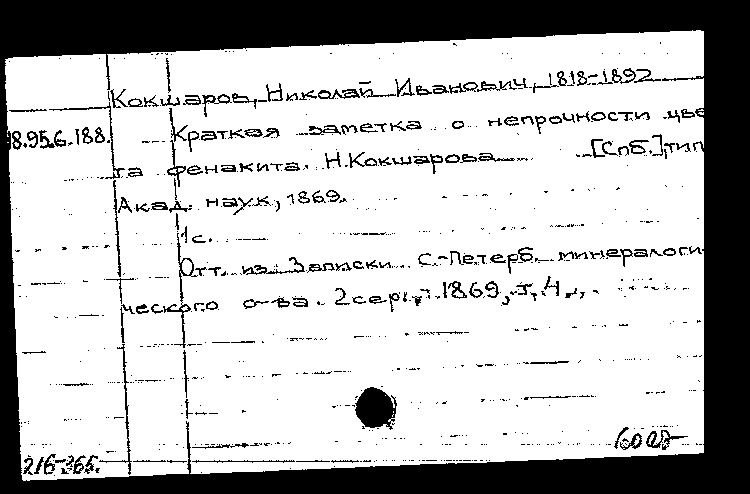 Кокшаров, Николай Иванович, 1818-1892
18.95.6.188. Краткая заметка о непрочности цве
та фенакита. Н.Кокшарова [Спб.], тип
Акад. наук, 1869.
1с.
Отт. из: Записки С.-Петерб. минералоги-
ческого о-ва. 2 сер., 1869, т.4,
216-365.